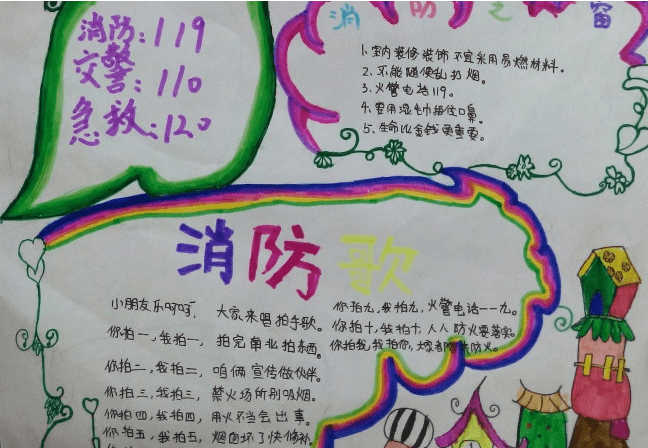 消防：119
交警：110
急救：120
消 防 之 窗
1、室内装修装饰不宜采用易燃材料。
2、不能随便乱扔烟。
3、火警电话119。
4、要用湿毛巾捂住口鼻。
5、生命比金钱更重要。
消防歌
小朋友乐呵呵， 大家来唱拍手歌。
你拍一，我拍一， 拍完单业拍东西。
你拍二，我拍二， 咱俩宣传做伙伴。
你拍三，我拍三， 禁火场所别吸烟。
你拍四，我拍四， 用火不当会出事。
你拍五，我拍五， 烟囱坏了快修补。
你拍九，我拍九，火警电话一一九。
你拍十，我拍十，人人防火要落实。
你拍我，我拍你，
防火。